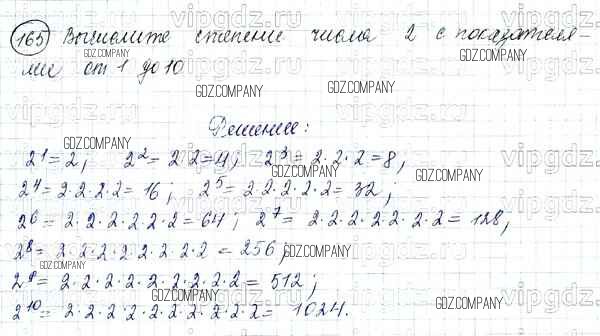 165 Вычислите степени числа 2 с показателя-
ми от 1 до 10.
Решение:
2¹ = 2; 2² = 2·2 = 4; 2³ = 2·2·2 = 8;
2⁴ = 2·2·2·2 = 16; 2⁵ = 2·2·2·2·2 = 32;
2⁶ = 2·2·2·2·2·2 = 64; 2⁷ = 2·2·2·2·2·2·2 = 128;
2⁸ = 2·2·2·2·2·2·2·2 = 256;
2⁹ = 2·2·2·2·2·2·2·2·2 = 512;
2¹⁰ = 2·2·2·2·2·2·2·2·2·2 = 1024.
GDZ.COMPANY
vipgdz.ru